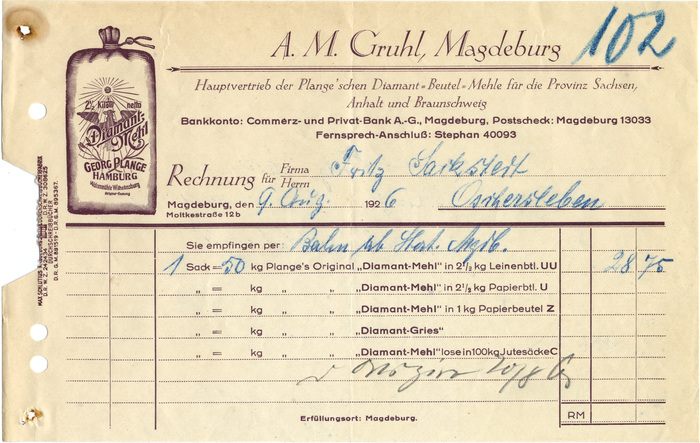 A. M. Gruhl, Magdeburg
102
Hauptvertrieb der Plange'schen Diamant=Beutel=Mehle für die Provinz Sachsen,
Anhalt und Braunschweig
Bankkonto: Commerz- und Privat-Bank A.-G., Magdeburg, Postscheck: Magdeburg 13033
Fernsprech-Anschluß: Stephan 40093
2½ Kilo netto
Diamant-
Mehl
GEORG PLANGE
HAMBURG
Rechnung für Firma Herrn Fritz
Magdeburg, den 9. Aug. 1926 Oschersleben
Moltkestraße 12b
Sie empfingen per: Bahn ab
1 Sack = 50 kg Plange's Original „Diamant-Mehl" in 2½ kg Leinenbtl. UU 28 75
„ = kg „ „ „Diamant-Mehl" in 2½ kg Papierbtl. U
„ = kg „ „ „Diamant-Mehl" in 1 kg Papierbeutel Z
„ = kg „ „ „Diamant-Gries"
„ = kg „ „ „Diamant-Mehl" lose in 100 kg Jutesäcke C
RM
Erfüllungsort: Magdeburg.